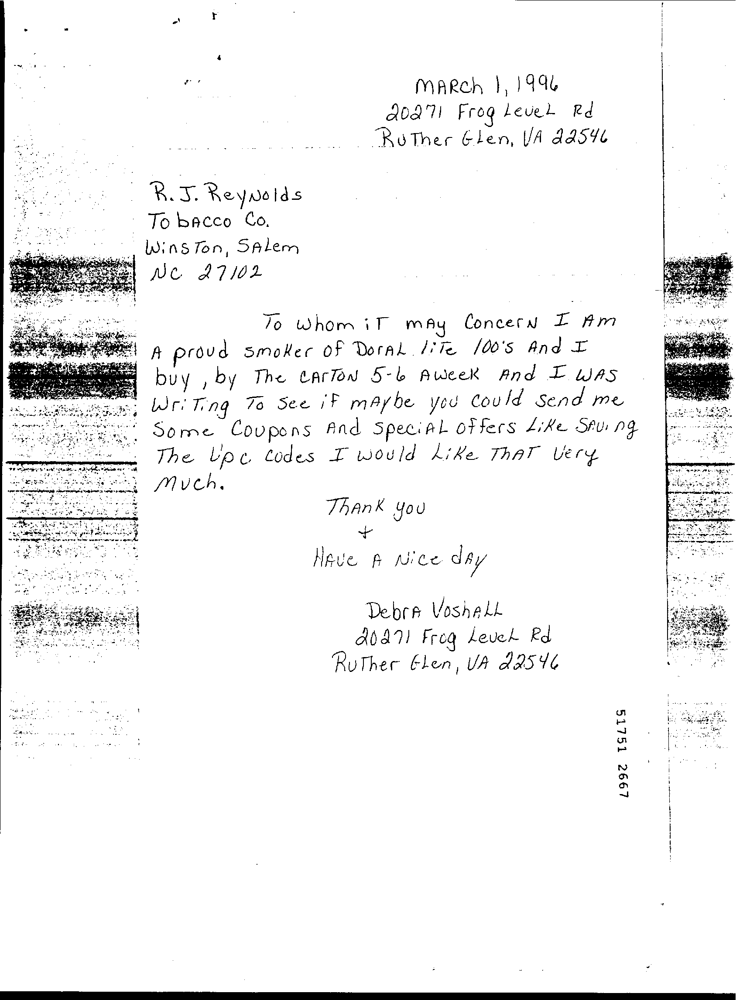 MARch 1, 1996
20271 Frog LeveL Rd
RuTher GLen, VA 22546
R. J. ReyNolds
TobAcco Co.
WinsTon, SALem
NC 27102
To whom iT mAy ConcerN I Am
A proud smoKer of DorAL liTe 100's And I
buy, by The cArTon 5-6 Aweek And I wAs
WriTing To see if mAybe you could send me
Some Coupons And speciAL offers LiKe SAving
The Upc codes I would LiKe ThAT very
Much.
ThAnK you
+
HAve A Nice dAy
DebrA VoshALL
20271 Frog LeveL Rd
RuTher GLen, VA 22546
51751 2667